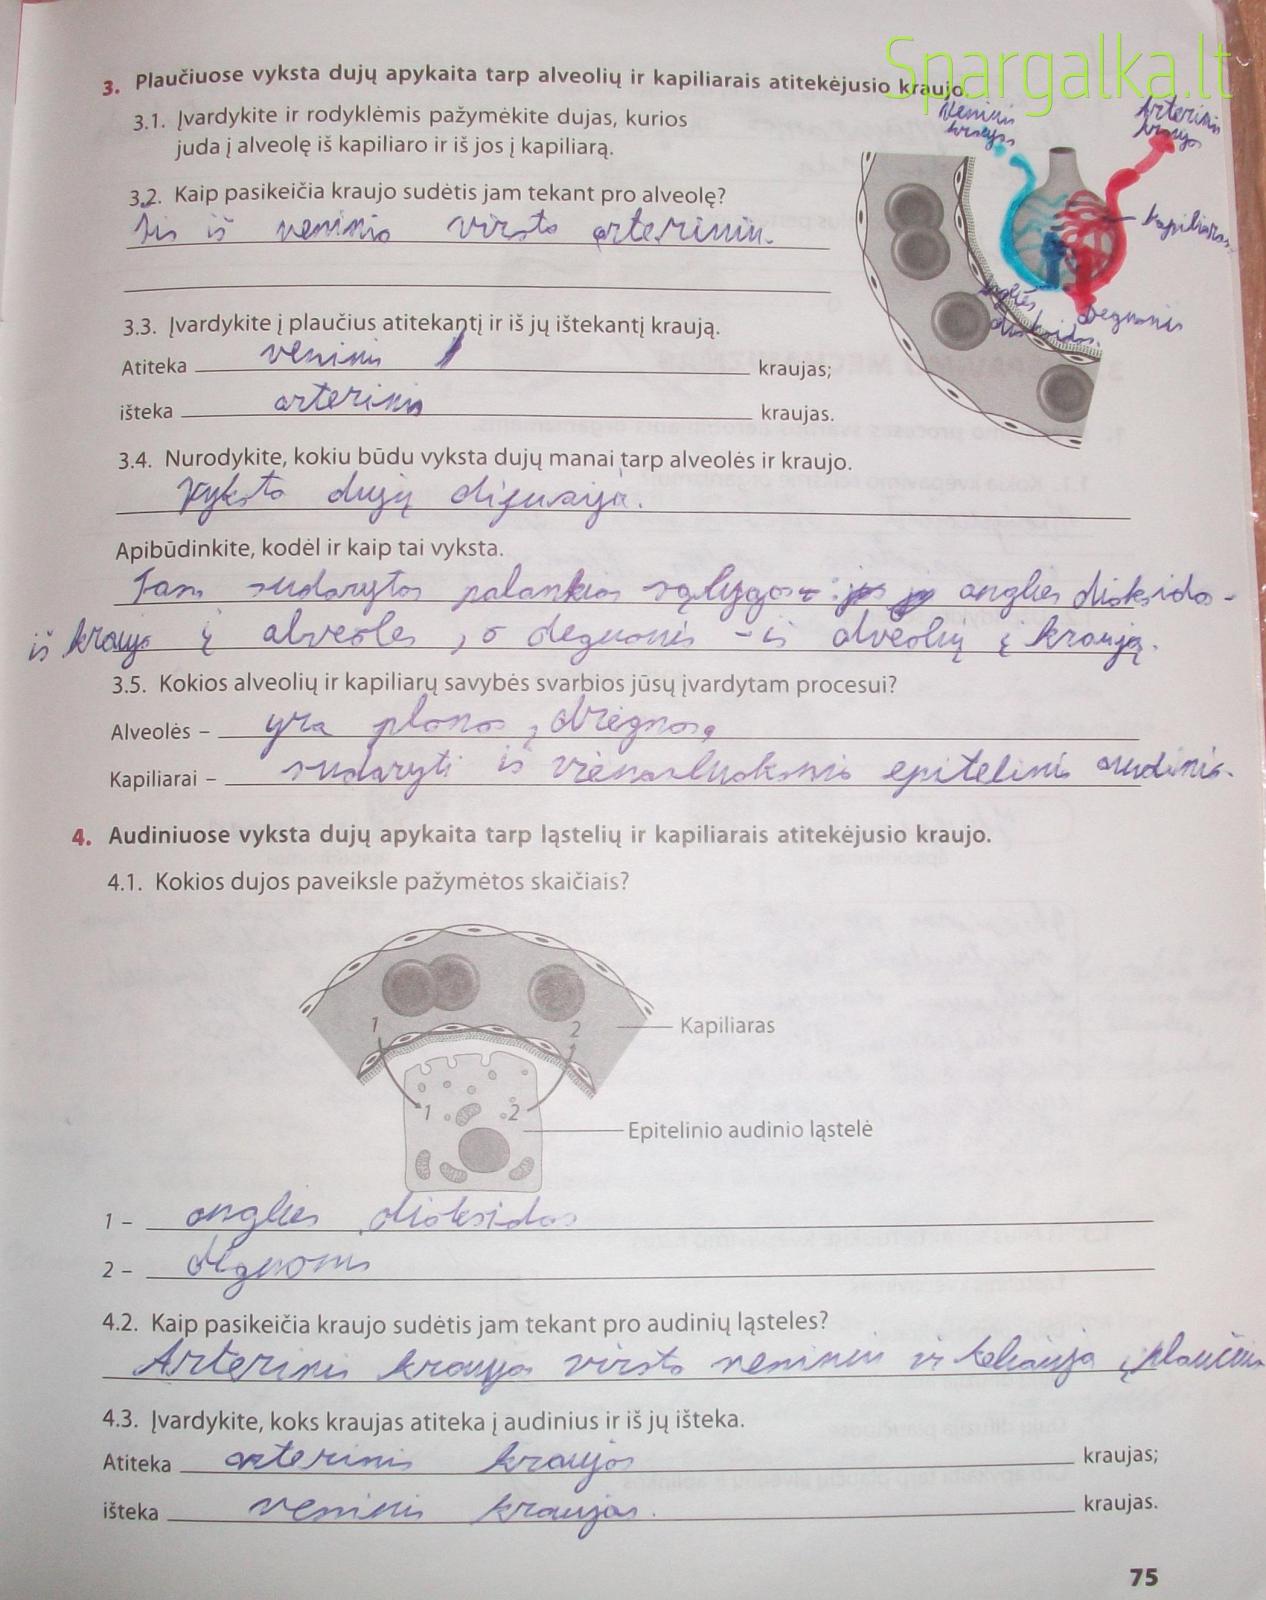 Spargalka.lt
3. Plaučiuose vyksta dujų apykaita tarp alveolių ir kapiliarais atitekėjusio kraujo.
3.1. Įvardykite ir rodyklėmis pažymėkite dujas, kurios
juda į alveolę iš kapiliaro ir iš jos į kapiliarą.
veninis
kraujas
Arterinis
kraujas
kapiliaras
anglies
dioksidas
deguonis
3.2. Kaip pasikeičia kraujo sudėtis jam tekant pro alveolę?
Jis iš veninio virsta arteriniu.
3.3. Įvardykite į plaučius atitekantį ir iš jų ištekantį kraują.
Atiteka veninis kraujas;
išteka arterinis kraujas.
3.4. Nurodykite, kokiu būdu vyksta dujų manai tarp alveolės ir kraujo.
Vyksta dujų difuzija.
Apibūdinkite, kodėl ir kaip tai vyksta.
Tam sudarytos palankios sąlygos: anglies dioksidas -
iš kraujo į alveoles, o deguonis - iš alveolių į kraują.
3.5. Kokios alveolių ir kapiliarų savybės svarbios jūsų įvardytam procesui?
Alveolės – yra plonos, drėgnos,
Kapiliarai – sudaryti iš vienasluoksnio epitelinio audinio.
4. Audiniuose vyksta dujų apykaita tarp ląstelių ir kapiliarais atitekėjusio kraujo.
4.1. Kokios dujos paveiksle pažymėtos skaičiais?
1 2
Kapiliaras
1 2
Epitelinio audinio ląstelė
1 – anglies dioksidas
2 – deguonis
4.2. Kaip pasikeičia kraujo sudėtis jam tekant pro audinių ląsteles?
Arterinis kraujas virsta veniniu ir keliauja į plaučius
4.3. Įvardykite, koks kraujas atiteka į audinius ir iš jų išteka.
Atiteka arterinis kraujas kraujas;
išteka veninis kraujas. kraujas.
75